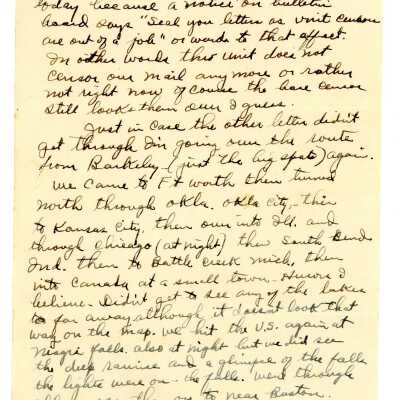 today because a notice on bulletin
board says "Seal you letters as unit censor
are out of a job" or words to that affect.
In other words this unit does not
censor our mail any more or rather
not right now of course the base censor
still looks them over I guess.
Just in case the other letter didn't
get through I'm going over the route
from Barkeley (just the big spots) again.
We came to Ft worth then turned
north through Okla. Okla City, then
to Kansas City, then over into Ill. and
through Chicago (at night) then South Bend
Ind. then to Battle Creek Mich, then
into Canada at a small town - Huron I
believe. Didn't get to see any of the lakes
to far away although it doesnt look that
way on the map. we hit the U.S. again at
Niagri falls. also at night but we did see
the deep ravine and a glimpse of the falls
the lights were on the falls. went through
to near Boston.